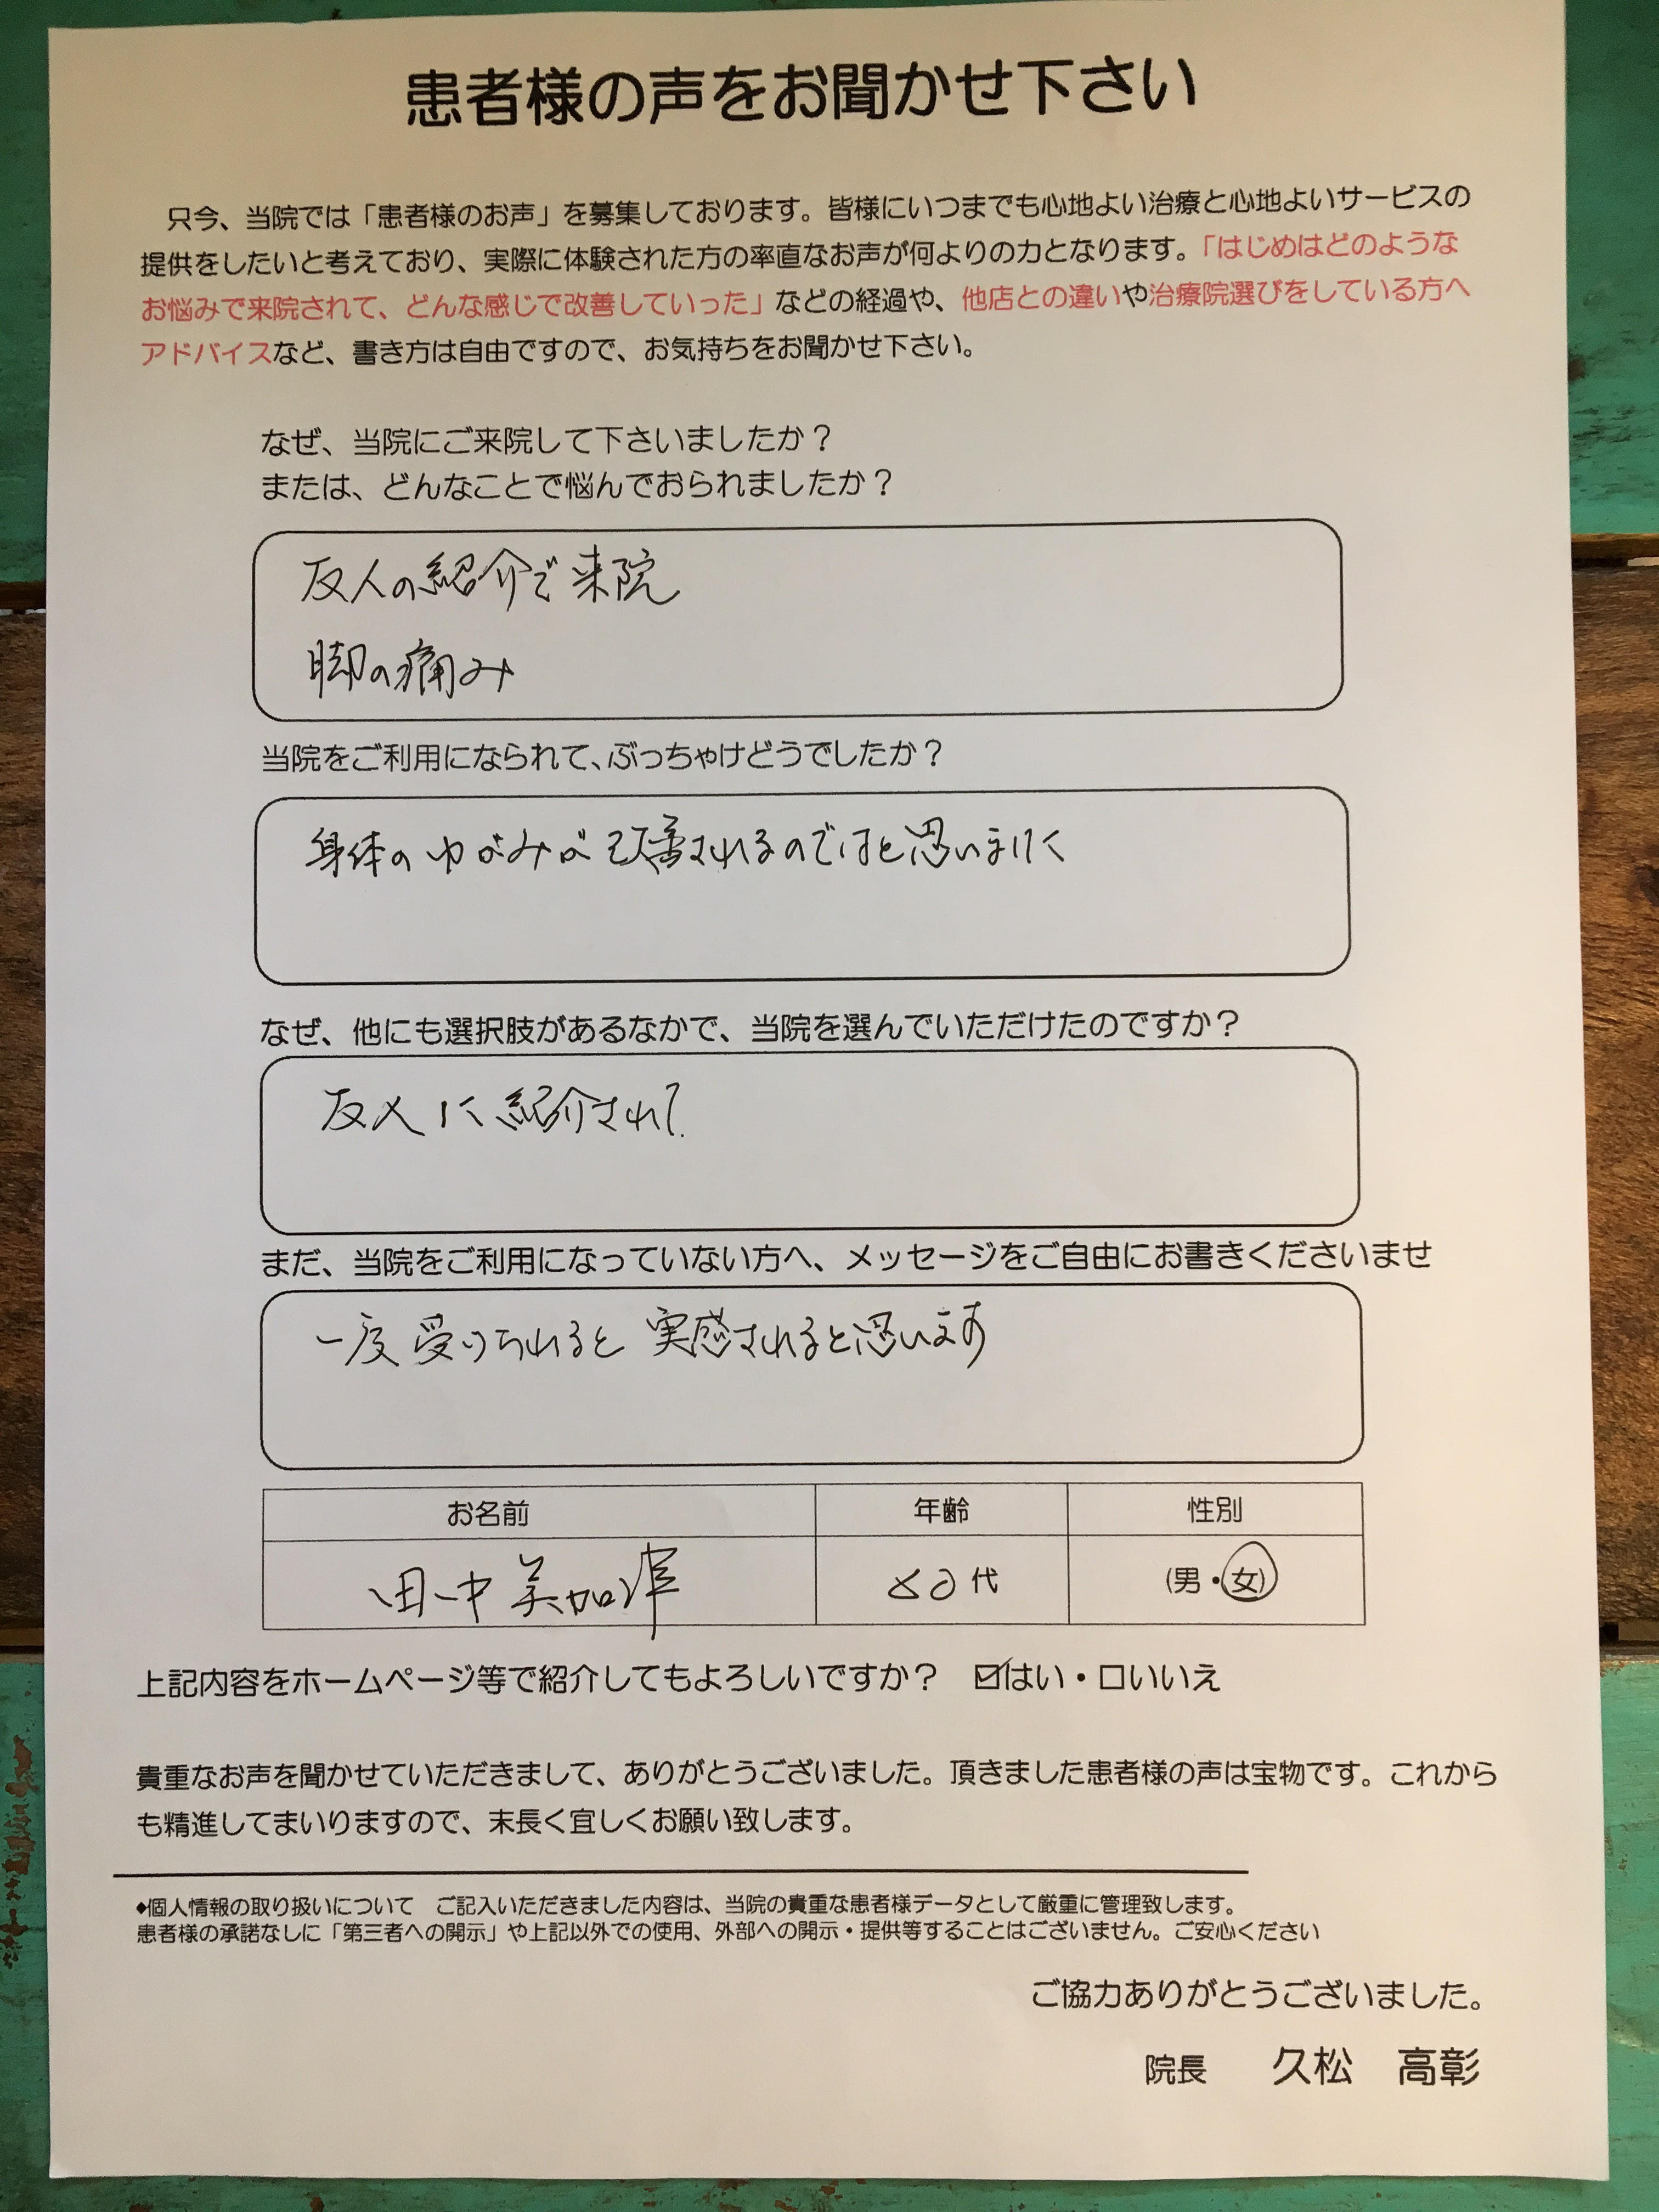 患者様の声をお聞かせ下さい
只今、当院では「患者様のお声」を募集しております。皆様にいつまでも心地よい治療と心地よいサービスの
提供をしたいと考えており、実際に体験された方の率直なお声が何よりの力となります。「はじめはどのような
お悩みで来院されて、どんな感じで改善していった」などの経過や、他店との違いや治療院選びをしている方へ
アドバイスなど、書き方は自由ですので、お気持ちをお聞かせ下さい。
なぜ、当院にご来院して下さいましたか？
または、どんなことで悩んでおられましたか？
友人の紹介で来院
脚の痛み
当院をご利用になられて、ぶっちゃけどうでしたか？
身体のゆがみが改善されるのではと思いました
なぜ、他にも選択肢があるなかで、当院を選んでいただけたのですか？
友人に紹介され
まだ、当院をご利用になっていない方へ、メッセージをご自由にお書きくださいませ
一度受けられると実感されると思います
お名前 年齢 性別
田中 美加 代 (男・女)
上記内容をホームページ等で紹介してもよろしいですか？ ☑はい・□いいえ
貴重なお声を聞かせていただきまして、ありがとうございました。頂きました患者様の声は宝物です。これから
も精進してまいりますので、末長く宜しくお願い致します。
◆個人情報の取り扱いについて ご記入いただきました内容は、当院の貴重な患者様データとして厳重に管理致します。
患者様の承諾なしに「第三者への開示」や上記以外での使用、外部への開示・提供等することはございません。ご安心ください
ご協力ありがとうございました。
院長 久松 高彰